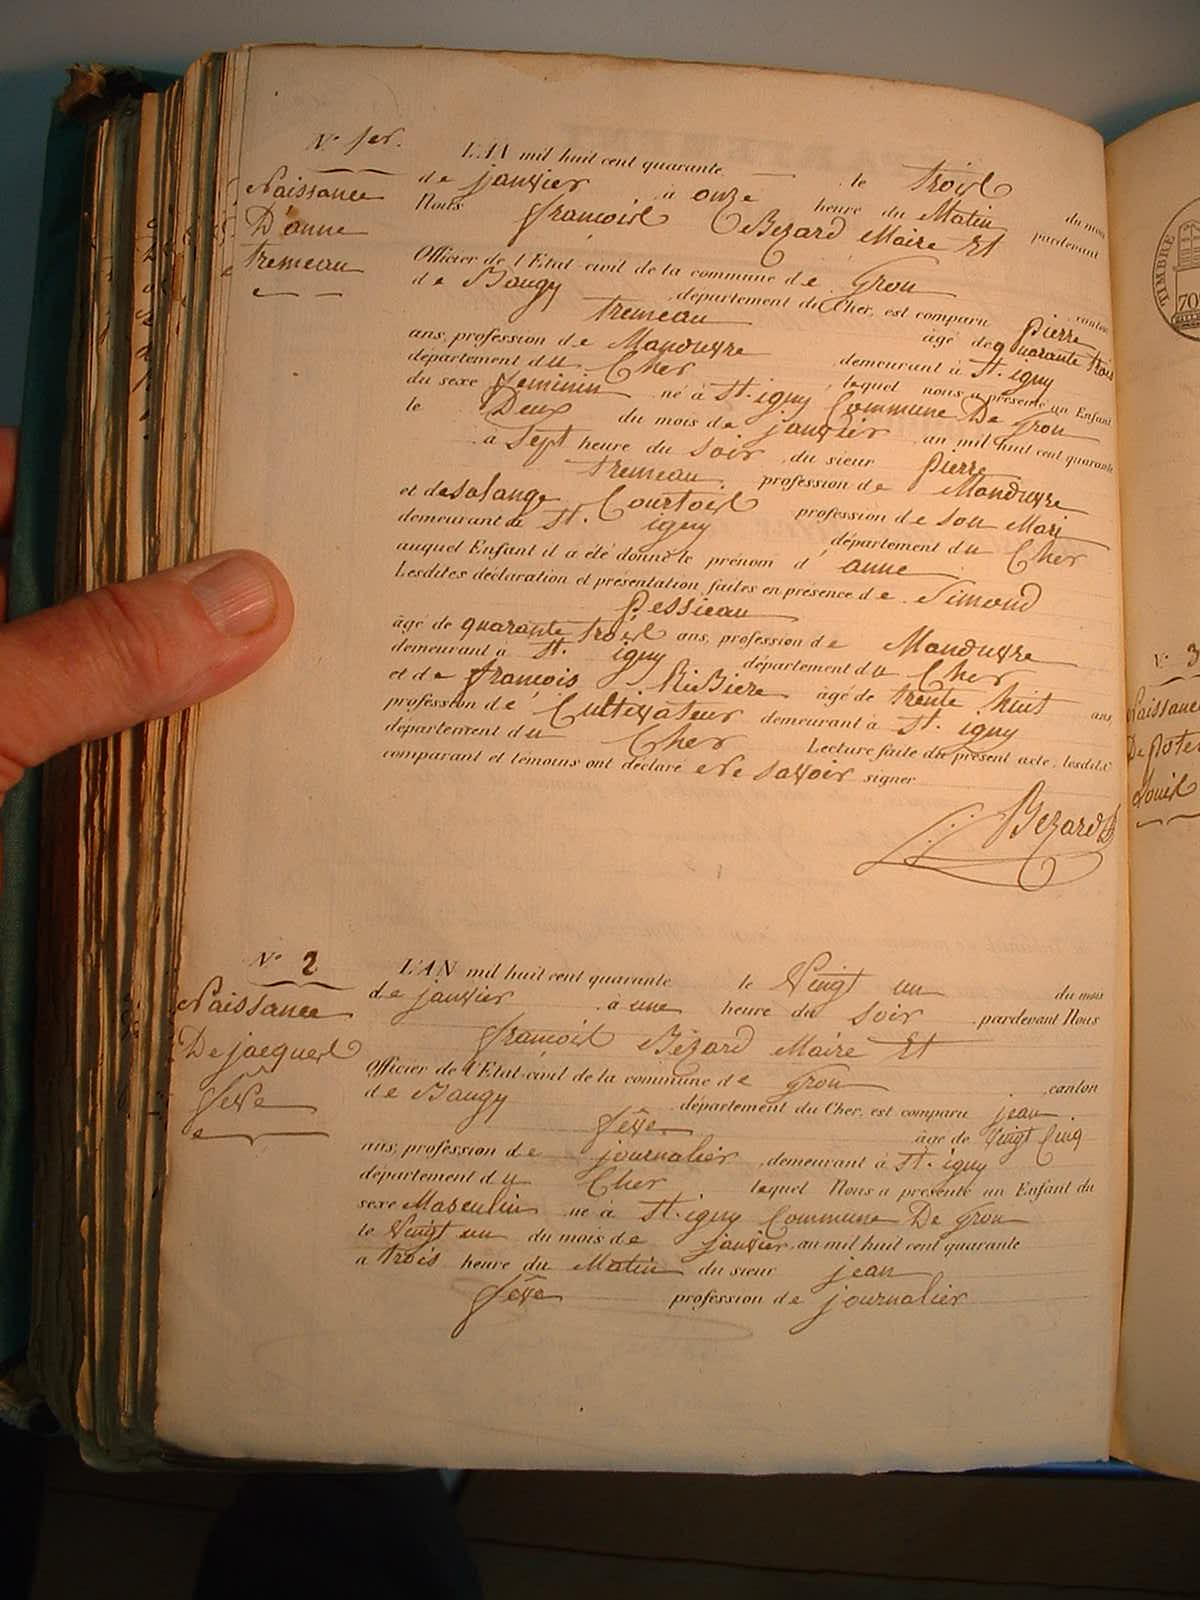 N.º 1er.
Naissance
D'anne
tremeau
L'AN mil huit cent quarante le troist
de janvier à onze heure du Matin du mois
Nous francoist Bezard Maire Et pardevant
Officier de l'Etat-civil de la commune de Gron
de Baugy département du Cher, est comparu Pierre canton
tremeau âgé de quarante trois
ans, profession de Manduvre demeurant à St. igny
département du Cher lequel nous a présenté un Enfant
du sexe feminin né à St. igny Commune De Gron
le Deux du mois de janvier an mil huit cent quarante
à Sept heure du soir du sieur pierre
tremeau profession de Manduvre
et de solange Courtoist profession de son Mari
demeurant à St. igny département du Cher
auquel Enfant il a été donné le prénom d'anne
Lesdites déclaration et présentation faites en présence de Simond
Pessieau
âgé de quarante troist ans, profession de Manduvre
demeurant à St. igny département du Cher
et de françois RiBiere âgé de trente huit ans,
profession de Cultivateur demeurant à St. igny
département du Cher Lecture faite du présent acte, lesdits
comparant et témoins ont déclaré Ne savoir signer
Bezard
N.º 2
Naissance
De jacquest
feve
L'AN mil huit cent quarante le Vingt un du mois
de janvier à une heure du Soir pardevant Nous
francoist Bézard Maire Et
Officier de l'Etat-civil de la commune de Gron canton
de Baugy département du Cher, est comparu jean
fêve âgé de Vingt Cinq
ans, profession de journalier demeurant à St. igny
département du Cher lequel Nous a présenté un Enfant du
sexe Masculin né à St. igny Commune De Gron
le Vingt un du mois de janvier an mil huit cent quarante
à trois heure du Matin du sieur jean
fêve profession de journalier
TIMBRE
70
N.º 3
Naissance
De
Louist